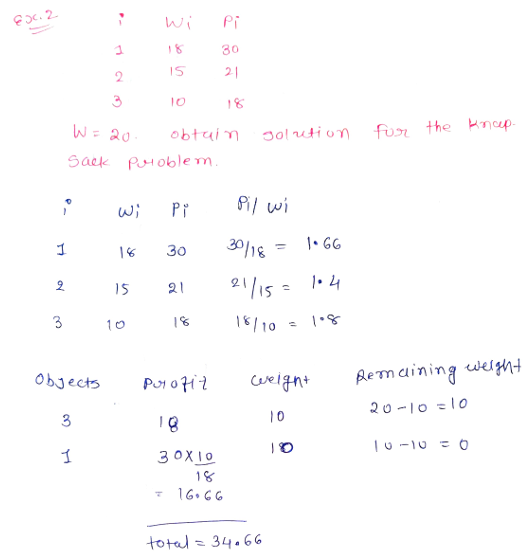 Ex.2
i Wi Pi
1 18 30
2 15 21
3 10 18
W = 20. obtain solution for the knap
sack problem.
i Wi Pi Pi/Wi
1 18 30 30/18 = 1.66
2 15 21 21/15 = 1.4
3 10 18 18/10 = 1.8
Objects Profit weight Remaining weight
3 18 10 20-10 = 10
1 30 x 10/18 10 10-10 = 0
= 16.66
total = 34.66